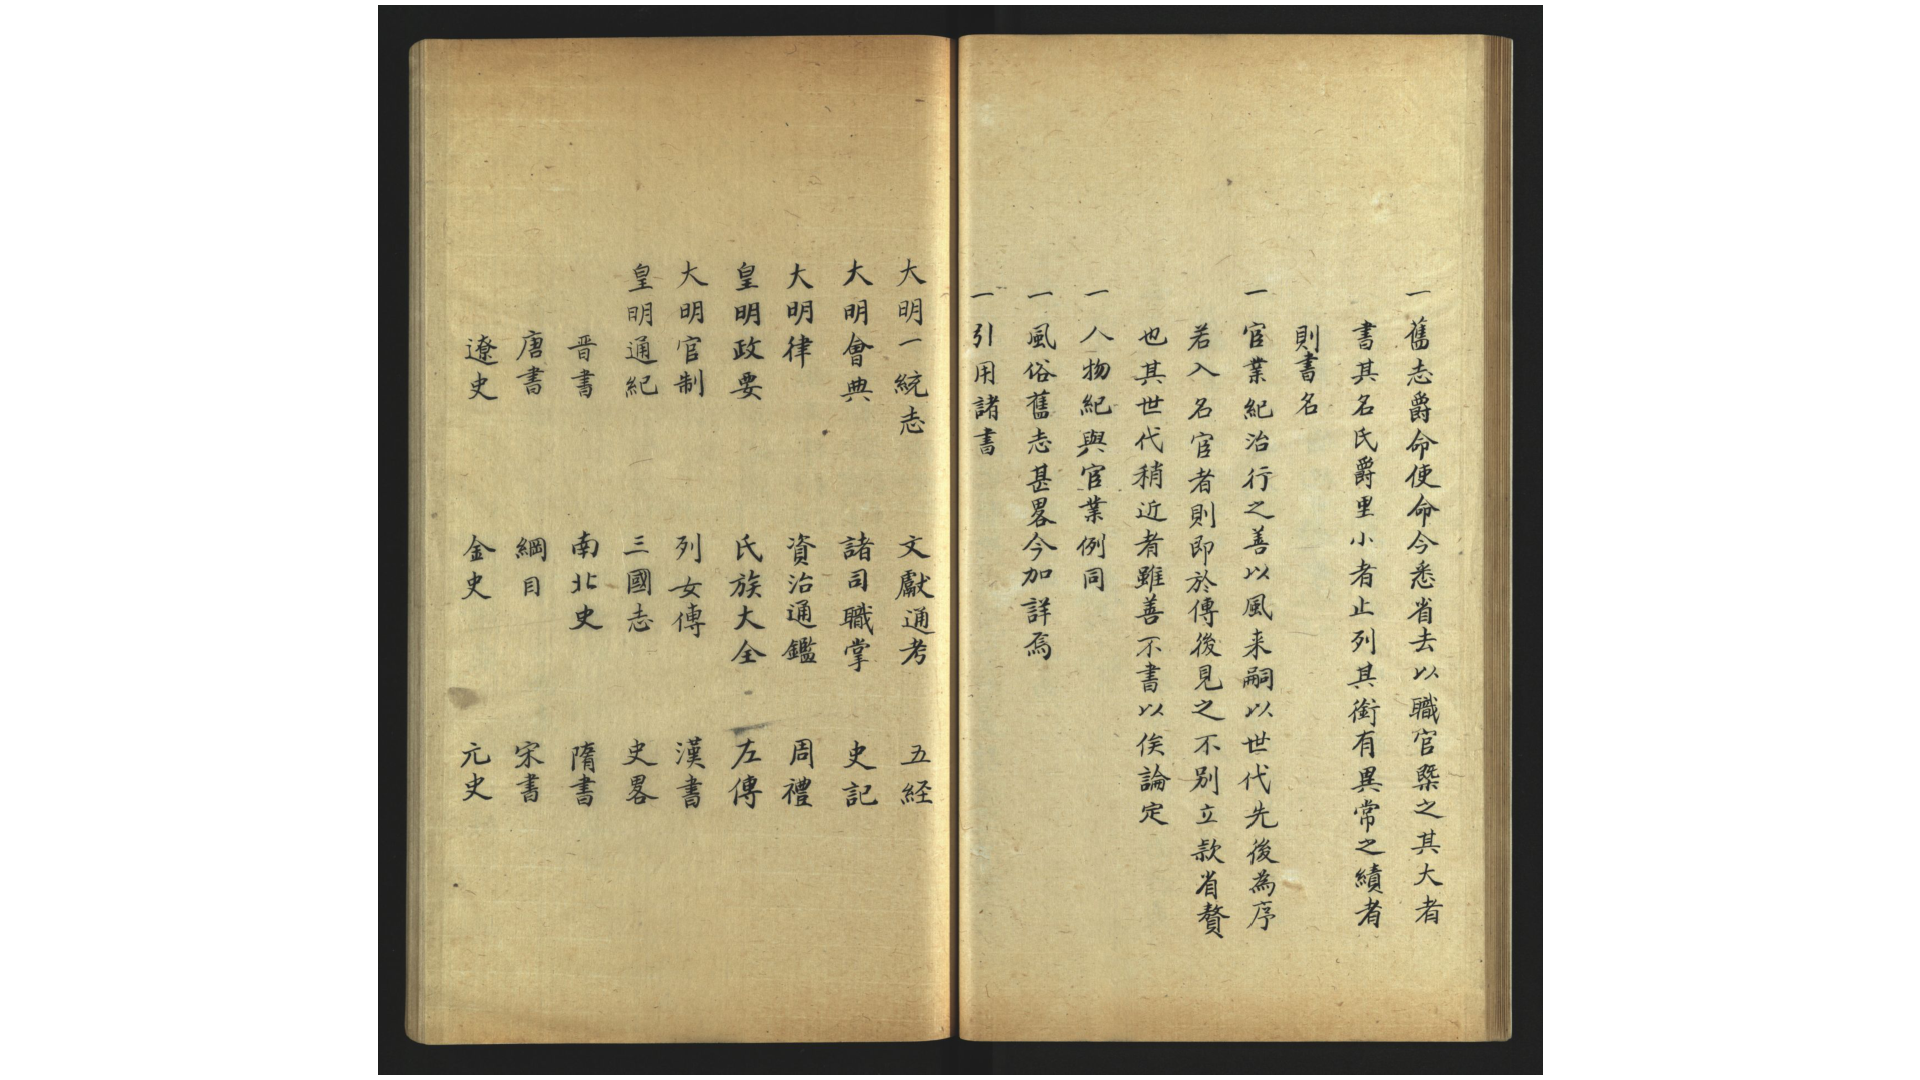 一舊志爵命使命今悉省去以職官槩之其大者
書其名氏爵里小者止列其銜有異常之績者
則書名
一宦業紀治行之善以風来嗣以世代先後為序
若入名宦者則即於傳後見之不別立款省贅
也其世代稍近者雖善不書以俟論定
一人物紀與宦業例同
一風俗舊志甚畧今加詳焉
一引用諸書
大明一統志 文獻通考 五経
大明會典 諸司職掌 史記
大明律 資治通鑑 周禮
皇明政要 氏族大全 左傳
大明官制 列女傳 漢書
皇明通紀 三國志 史畧
晋書 南北史 隋書
唐書 綱目 宋書
遼史 金史 元史